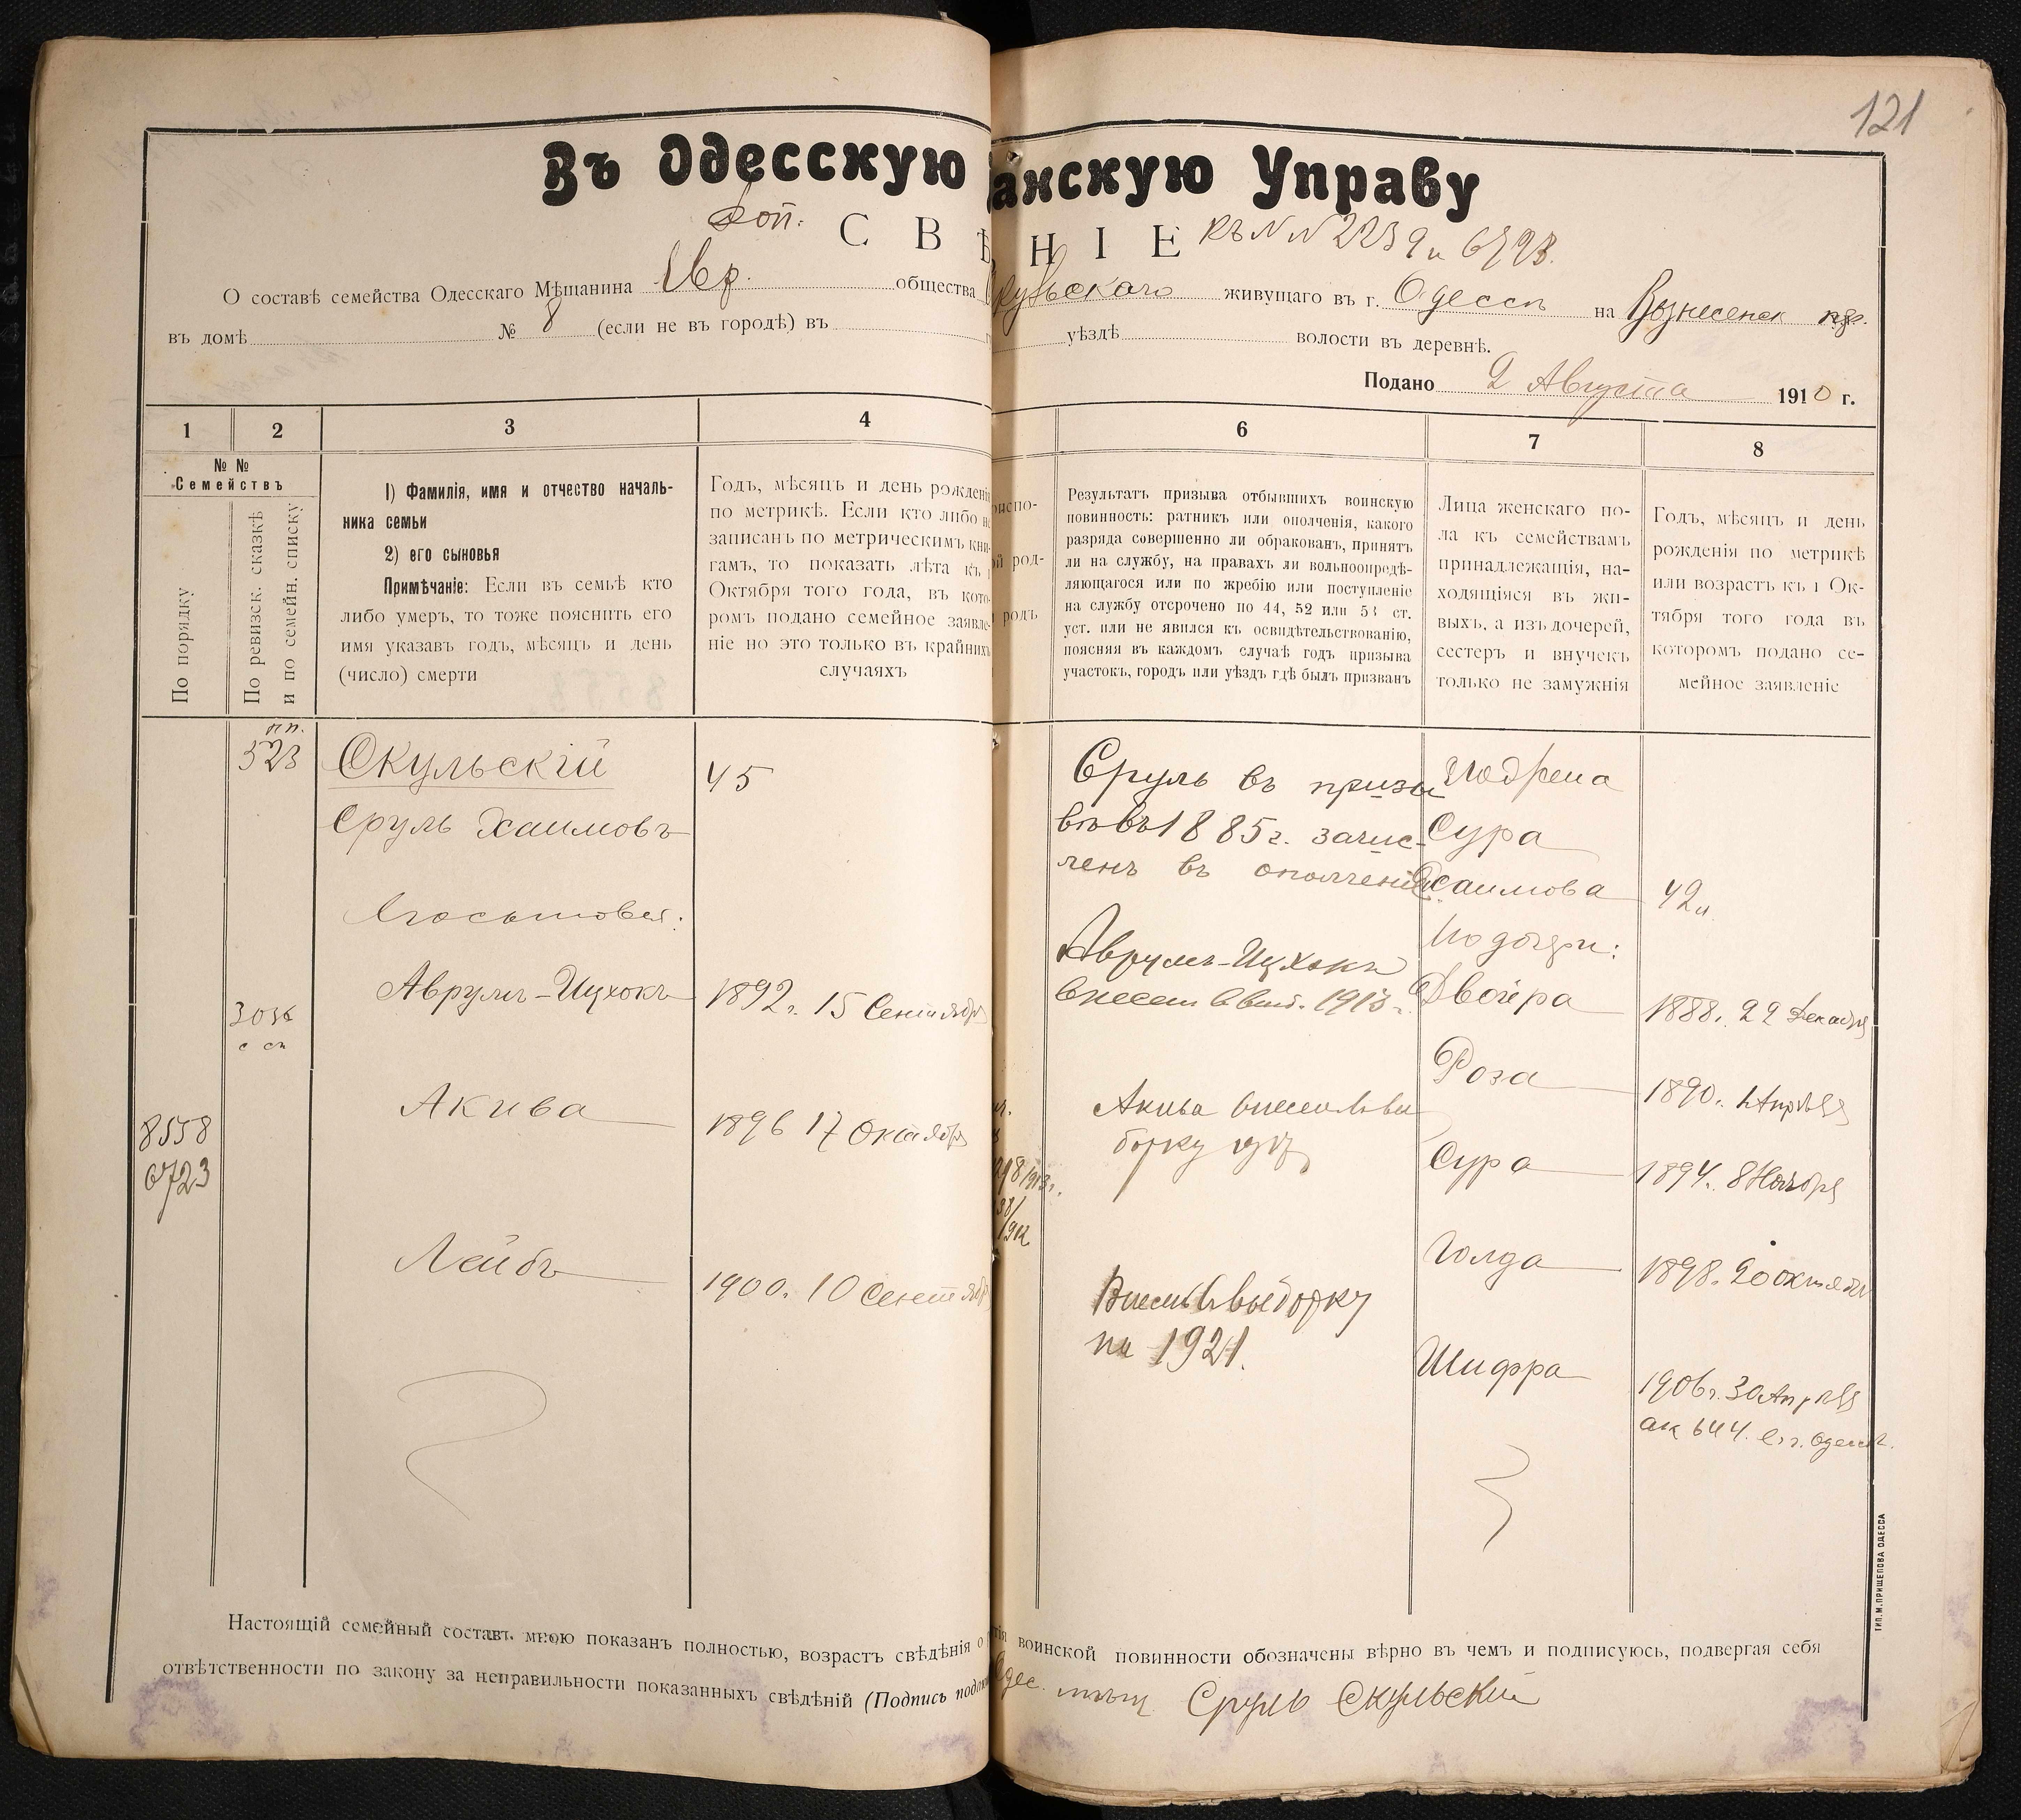 121
Въ Одесскую анскую Управу
Доп. С В Ѣ Н I Е къ №№ 2239 и 6723.
О составѣ семейства Одесскаго Мѣщанина Евр. общества Скульскаго живущаго въ г. Одессѣ на Вознесенск
въ домѣ № 8 (если не въ городѣ) въ уѣздѣ волости въ деревнѣ.
Подано 2 Августа 1910 г.
1 2 3 4 6 7 8
№ №
Семействъ
По порядку
По ревизск. сказкѣ
и по семейн. списку
1) Фамилія, имя и отчество началь-
ника семьи
2) его сыновья
Примѣчаніе: Если въ семьѣ кто
либо умеръ, то тоже пояснить его
имя указавъ годъ, мѣсяцъ и день
(число) смерти
Годъ, мѣсяцъ и день рожденія
по метрикѣ. Если кто либо не
записанъ по метрическимъ кни-
гамъ, то показать лѣта къ 1
Октября того года, въ кото-
ромъ подано семейное заявле-
ніе но это только въ крайнихъ
случаяхъ
Результатъ призыва отбывшихъ воинскую
повинность: ратникъ или ополченія, какого
разряда совершенно ли обракованъ, принятъ
ли на службу, на правахъ ли вольноопредѣ-
ляющагося или по жребію или поступленіе
на службу отсрочено по 44, 52 или 53 ст.
уст. или не явился къ освидѣтельствованію,
поясняя въ каждомъ случаѣ годъ призыва
участокъ, городъ или уѣздъ гдѣ былъ призванъ
Лица женскаго по-
ла къ семействамъ
принадлежащія, на-
ходящіяся въ жи-
выхъ, а изъ дочерей,
сестеръ и внучекъ
только не замужнія
Годъ, мѣсяцъ и день
рожденія по метрикѣ
или возрастъ къ 1 Ок-
тября того года въ
которомъ подано се-
мейное заявленіе
523
Скульскій
Сруль Хаимовъ
45
Сруль въ призы
въ 1885 г. зачис-
ленъ въ ополченіе
Сура
Хаимова
42
Его сыновья:
Аврумъ-Ицхокъ
1892 г. 15 Сентября
Аврумъ-Ицхокъ
внесенъ 1913 г.
Его дочери:
Двойра
1888. 22 Декабря
Роза
1890. 1 Апрѣля
Акива
1896 17 Октября
8558
6723
Акива внесенъ въ вы
борку 1917
Сура
1894. 8 Ноября
Лейбъ
1900. 10 Сентября
Внесенъ въ выборку
на 1921.
Голда
1898. 20 октября
Шифра
1906 г. 30 Апрѣля
ак 644.
Настоящій семейный составъ мною показанъ полностью, возрастъ свѣдѣнія о воинской повинности обозначены вѣрно въ чемъ и подписуюсь, подвергая себя
отвѣтственности по закону за неправильности показанныхъ свѣдѣній (Подпись
Одес. мѣщ Сруль Скульскій
ТИП. М. ПРИЩЕПОВА ОДЕССА